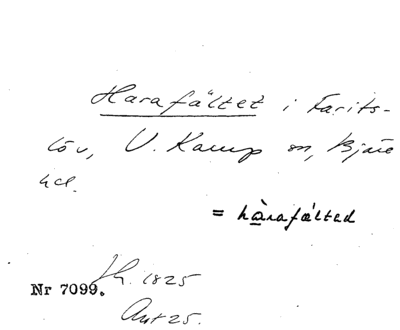 Harafältet i Farits-
löv, V. Karup sn, Bjäre
hd.
= hàrafälted
Nr 7099. Jh. 1825
Ant 25.